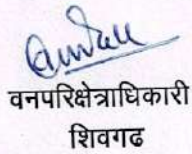 वनपरिक्षेत्राधिकारी
शिवगढ